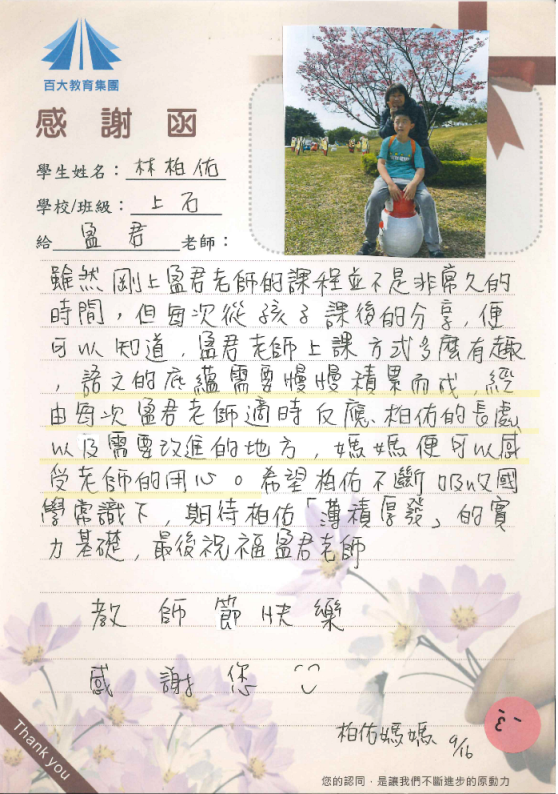 百大教育集團
感謝函
學生姓名：林柏佑
學校/班級：上石
給 盈君 老師：
雖然剛上盈君老師的課程並不是非常久的
時間，但每次從孩子課後的分享，便
可以知道，盈君老師上課方式多麼有趣
，語文的底蘊需要慢慢積累而成，經
由每次盈君老師適時反應、柏佑的長處
以及需要改進的地方，媽媽便可以感
受老師的用心。希望柏佑不斷吸收國
學常識下，期待柏佑「薄積厚發」的實
力基礎，最後祝福盈君老師
教師節快樂
感謝您
柏佑媽媽 9/16
Thank you
您的認同，是讓我們不斷進步的原動力